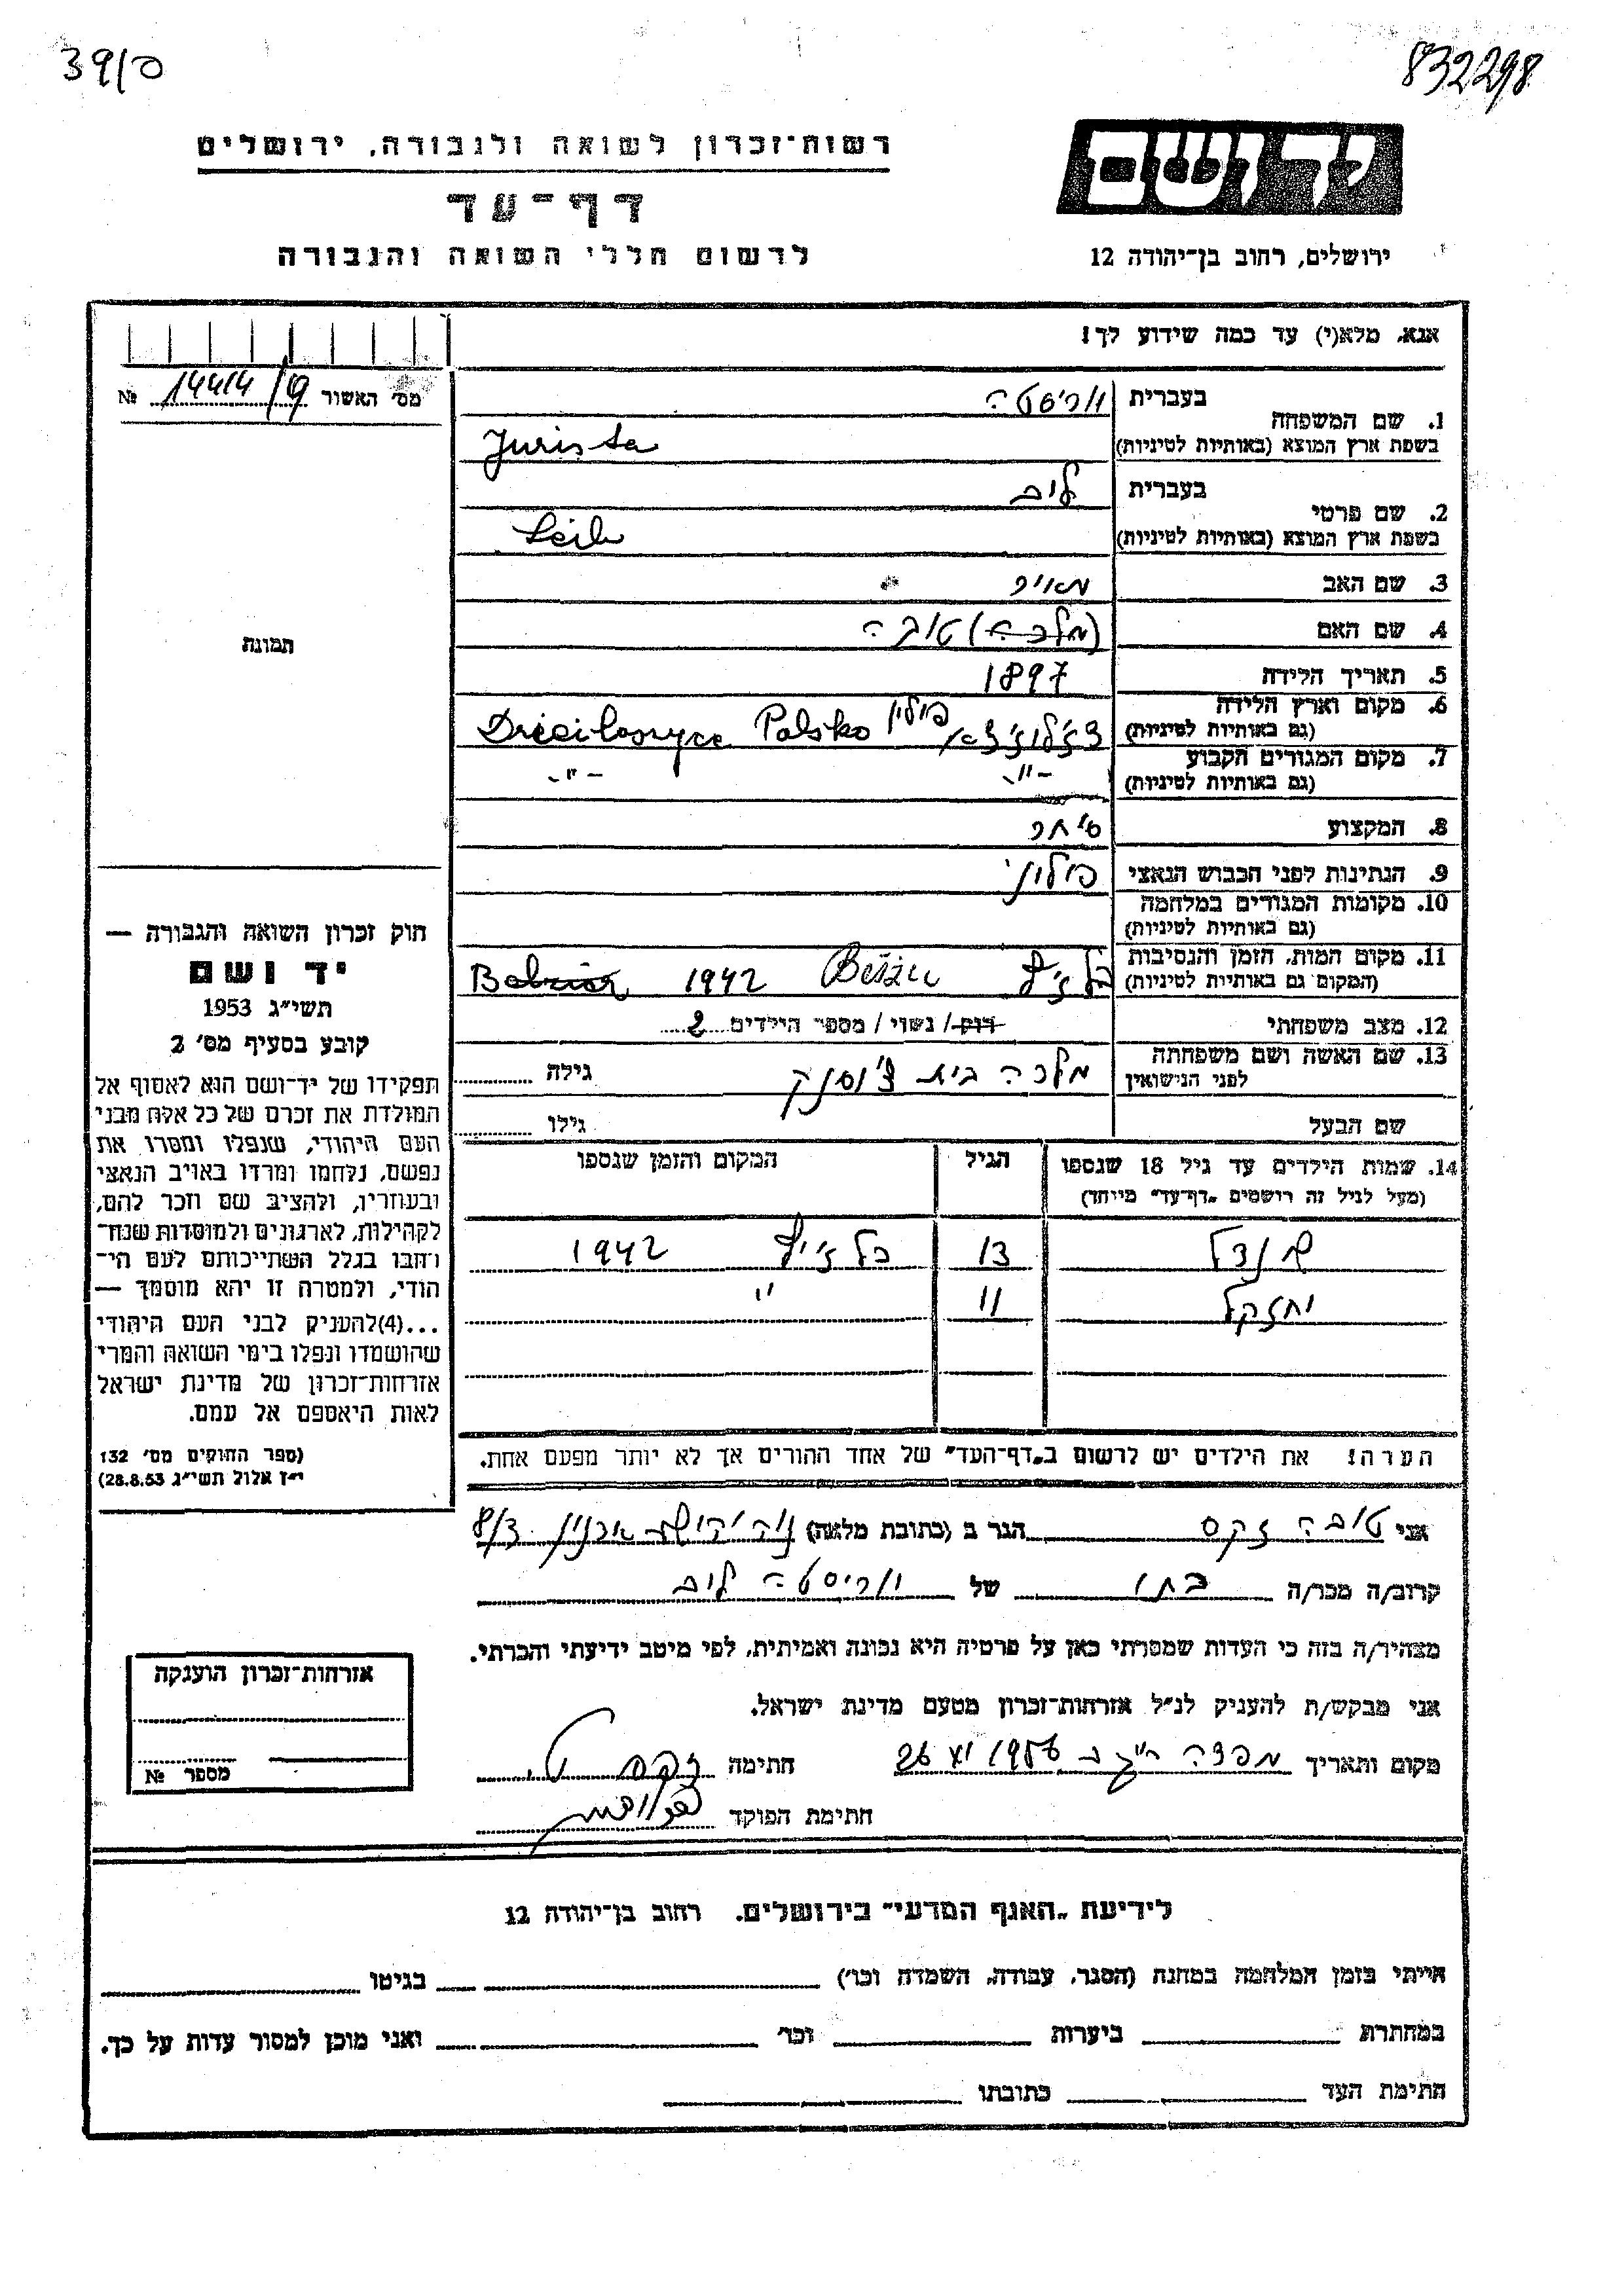 39/ס
832298
יד ושם
רשות־זכרון לשואה ולגבורה, ירושלים
דף־עד
לרשום חללי השואה והגבורה
ירושלים, רחוב בן־יהודה 12
אנא, מלא(י) עד כמה שידוע לך!
מס׳ האשור 14414/ № 
בעברית
1. שם המשפחה יוריסטה
בשפת ארץ המוצא (באותיות לטיניות) Jurista
בעברית לייב
2. שם פרטי
בשפת ארץ המוצא (באותיות לטיניות) Leib
3. שם האב מאיר
4. שם האם (מלכה) טובה
5. תאריך הלידה 1897
6. מקום וארץ הלידה פולין Polsko
(גם באותיות לטיניות)
7. מקום המגורים הקבוע -"- -"-
(גם באותיות לטיניות)
8. המקצוע סוחר
9. הנתינות לפני הכבוש הנאצי פולני
10. מקומות המגורים במלחמה
(גם באותיות לטיניות)
11. מקום המות, הזמן והנסיבות בלז׳יץ 1942
(המקום גם באותיות לטיניות)
12. מצב משפחתי רווק / נשוי / מספר הילדים 2
13. שם האשה ושם משפחתה מלכה בית גילה
לפני הנישואין
שם הבעל גילו
14. שמות הילדים עד גיל 18 שנספו הגיל המקום והזמן שנספו
(מעל לגיל זה רושמים „דף־עד” מיוחד)
שינדל 13 בלז׳יץ 1942
יחזקל 11 "
הערה! את הילדים יש לרשום ב„דף־העד” של אחד ההורים אך לא יותר מפעם אחת.
תמונה
חוק זכרון השואה והגבורה —
יד ושם
תשי״ג 1953
קובע בסעיף מס׳ 2
תפקידו של יד־ושם הוא לאסוף אל
המולדת את זכרם של כל אלה מבני
העם היהודי, שנפלו ומסרו את
נפשם, נלחמו ומרדו באויב הנאצי
ובעוזריו, ולהציב שם וזכר להם,
לקהילות, לארגונים ולמוסדות שנח־
רבו בגלל השתייכותם לעם הי־
הודי, ולמטרה זו יהא מוסמך —
...(4)להעניק לבני העם היהודי
שהושמדו ונפלו בימי השואה והמרי
אזרחות־זכרון של מדינת ישראל
לאות היאספם אל עמם.
(ספר החוקים מס׳ 132
י״ז אלול תשי״ג 28.8.53)
אני טובה זקס הגר ב (כתובת מלאה)
קרוב/ה מכר/ה בתו של יוריסטה לייב
מצהיר/ה בזה כי העדות שמסרתי כאן על פרטיה היא נכונה ואמיתית, לפי מיטב ידיעתי והכרתי.
אני מבקש/ת להעניק לנ״ל אזרחות־זכרון מטעם מדינת ישראל.
מקום ותאריך 26 XI 1956 חתימה זקס ט.
חתימת הפוקד
אזרחות־זכרון הוענקה
מספר №
לידיעת „האגף המדעי” בירושלים. רחוב בן־יהודה 12
הייתי בזמן המלחמה במחנה (הסגר, עבודה, השמדה וכו׳) בגיטו
במחתרת ביערות וכו׳ ואני מוכן למסור עדות על כך.
חתימת העד כתובתו